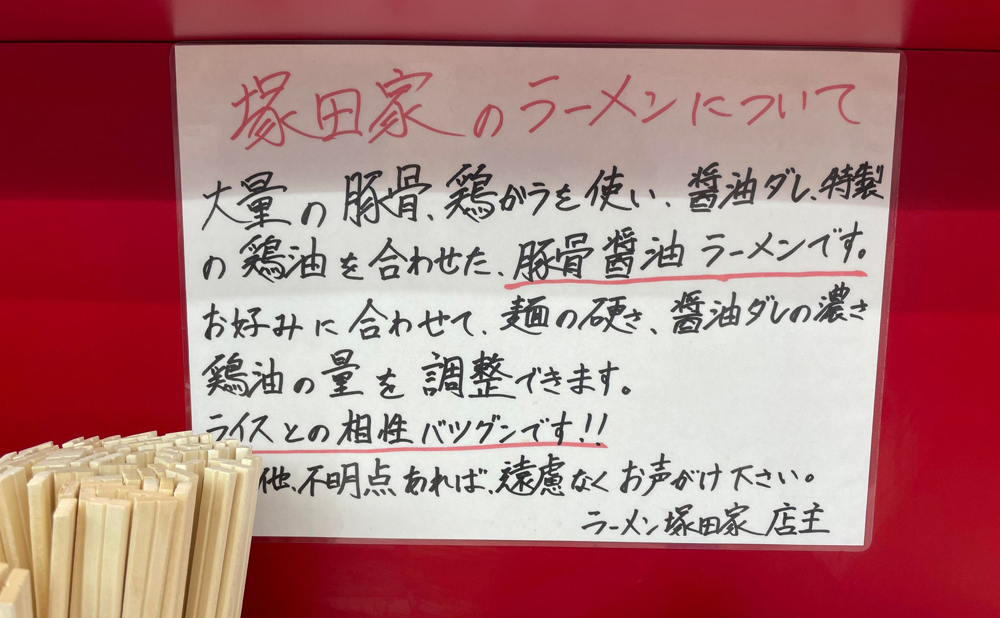 塚田家のラーメンについて
大量の豚骨、鶏がらを使い、醤油ダレ、特製
の鶏油を合わせた、豚骨醤油ラーメンです。
お好みに合わせて、麺の硬さ、醤油ダレの濃さ
鶏油の量を調整できます。
ライスとの相性バツグンです!!
他、不明点あれば、遠慮なくお声がけ下さい。
ラーメン塚田家 店主